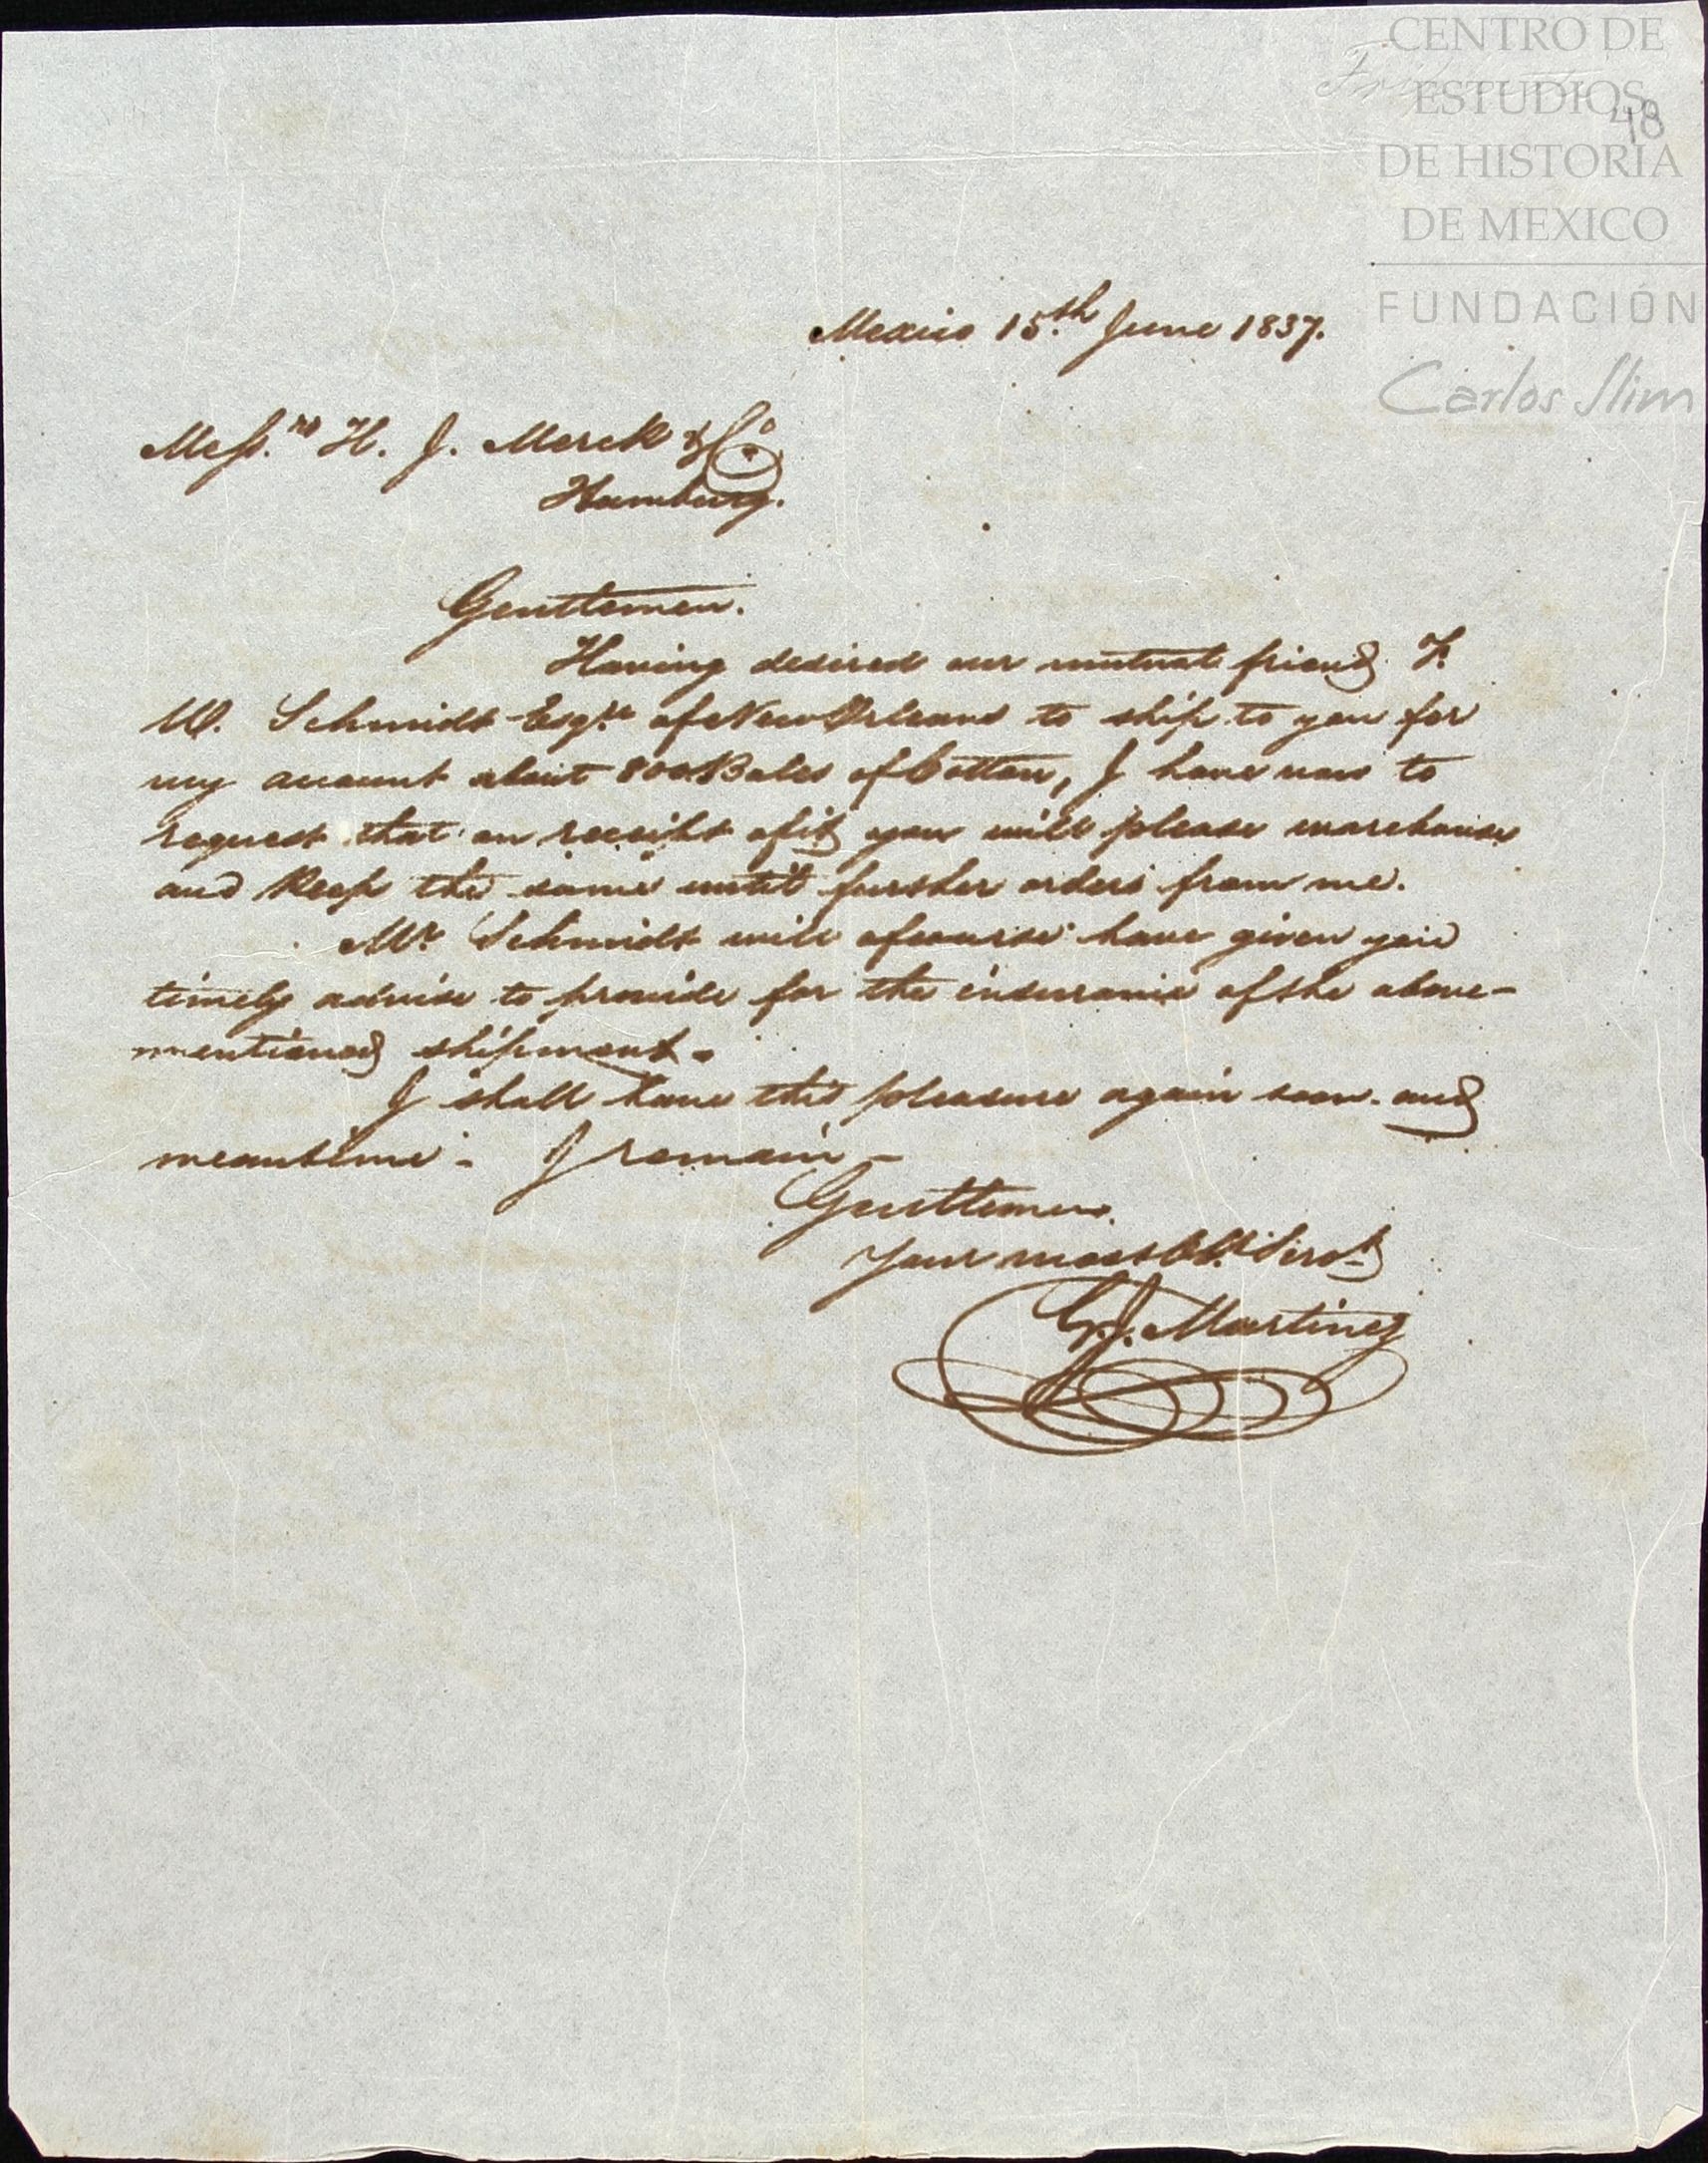 CENTRO DE
ESTUDIOS
48
DE HISTORIA
DE MEXICO
FUNDACIÓN
Carlos Slim
Mexico 15.th June 1837.
Mess.rs H. J. Merck & Co.
Hamburg.
Gentlemen.
Having desired our mutual friend F.
W. Schmidt Esqre of New Orleans to ship to you for
my account about 800 Bales of Cotton, I have now to
request that on receipt of it you will please warehouse
and Keep the same until further orders from me.
Mr Schmidt will of course have given you
timely advise to provide for the insurance of the above-
mentioned shipment.
I shall have this pleasure again soon. and
meantime - I remain -
Gentlemen.
Your most Obt. Servt.
J. Martinez